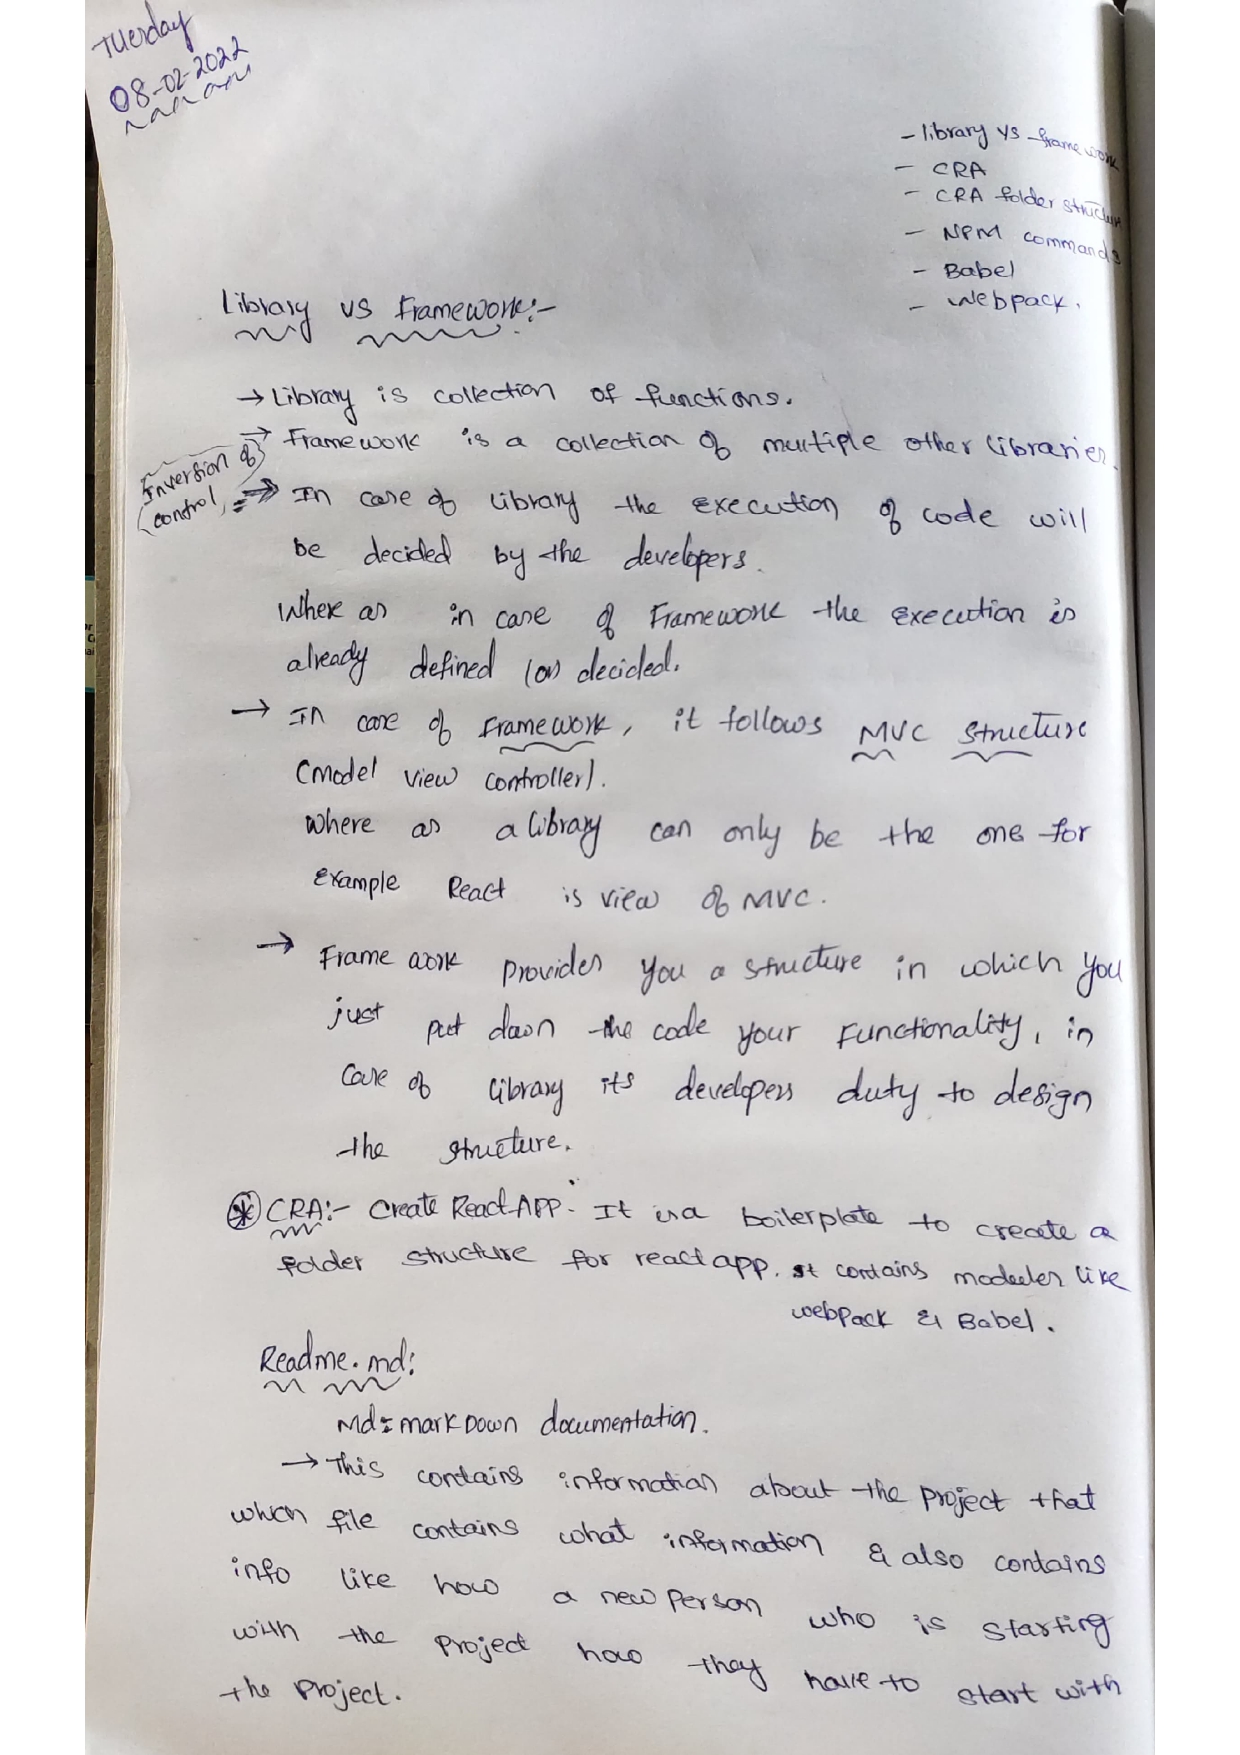 Tuesday
08-02-2022
- library vs framework
- CRA
- CRA folder structure
- NPM commands
- Babel
- Webpack.
Library vs Framework:-
→ Library is collection of functions.
→ Framework is a collection of multiple other libraries.
Inversion of
control
⇒ In case of library the execution of code will
be decided by the developers.
Where as in case of Framework the execution is
already defined (or) decided.
→ In case of Framework, it follows MVC structure
(model view controller).
where as a library can only be the one for
example React is view of MVC.
→ Frame work provides you a structure in which you
just put down the code your functionality, in
case of library its developers duty to design
the structure.
* CRA:- Create React APP. It is a boilerplate to create a
folder structure for react app. It contains modules like
webpack & Babel.
Readme.md:
Md = markDown documentation.
→ This contains information about the project that
which file contains what information & also contains
info like how a new person who is starting
with the project how they have to start with
the project.